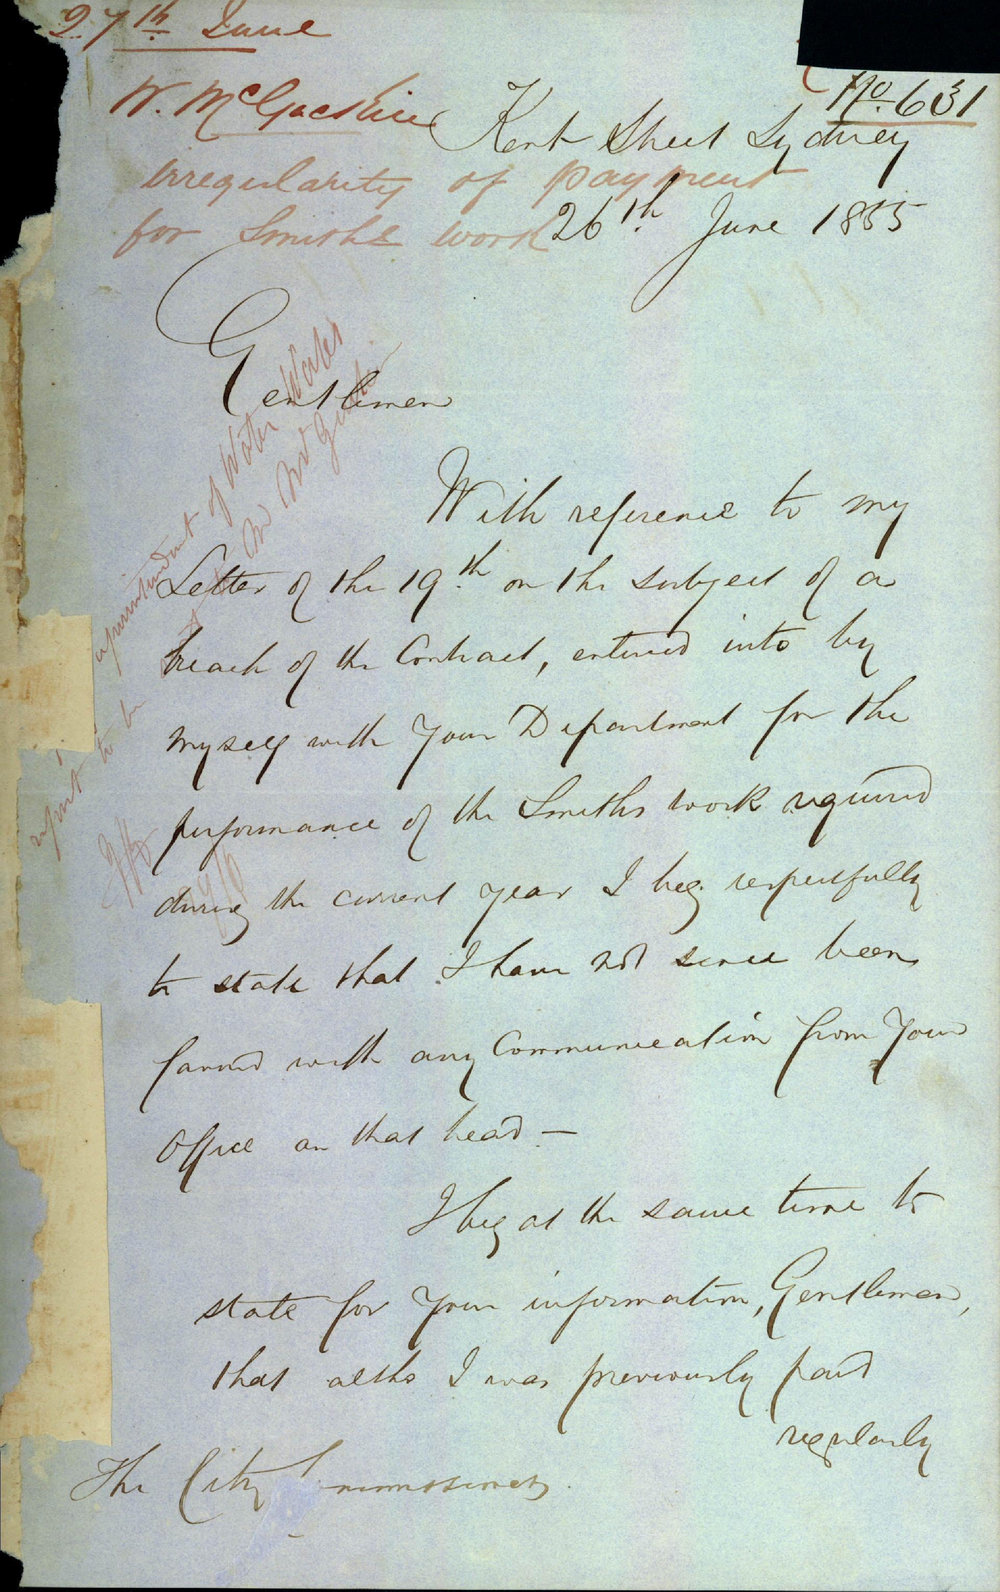 27th June
No. 631
W. McGuckin
Kent Street Sydney
irregularity of payment
for Smiths work
26th. June 1855
Gentlemen
With reference to my
Letter of the 19th on the subject of a
breach of the Contract, entered into by
myself with Your Department for the
performance of the Smiths work required
during the current year I beg respectfully
to state that I have not since been
favored with any Communication from Your
Office on that head —
I beg at the same time to
state for Your information, Gentlemen,
that altho I was previously paid
regularly
The City Commissioners
of Water Works
to be